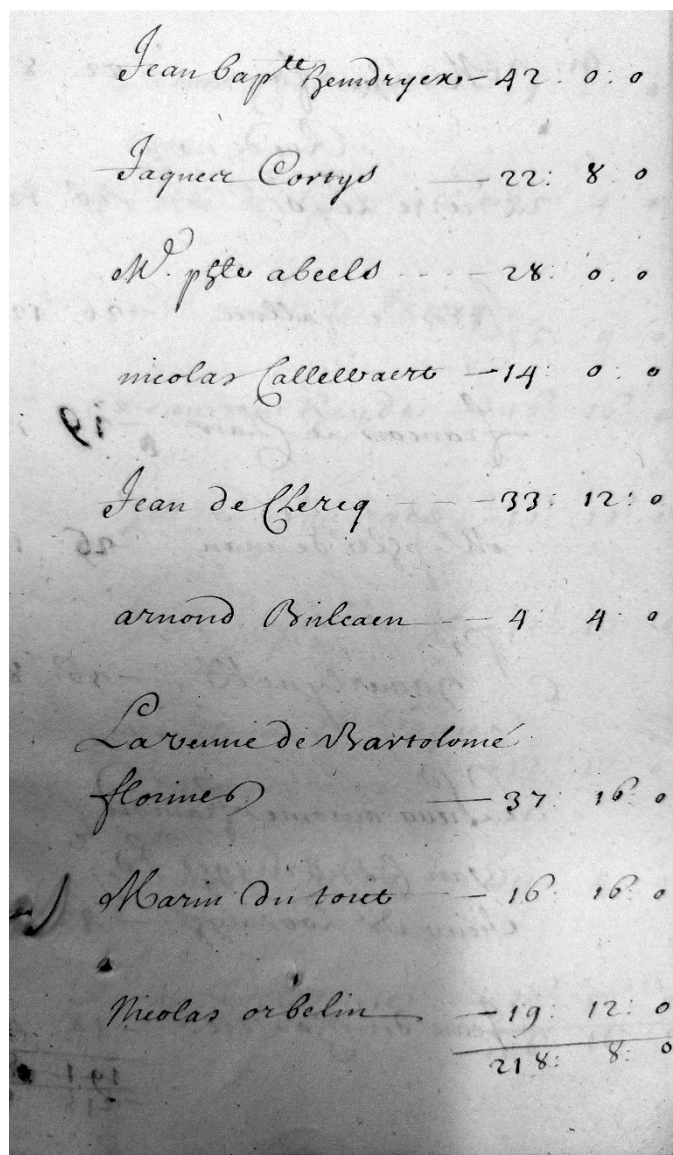 Jean bap.tte Hemdryckx — 42: 0: 0
Jaques Cortys — 22: 8: 0
Mr. phle abeels - - - 28: 0: 0
nicolas Callewaert — 14: 0: 0
Jean de Clercq - - - 33: 12: 0
arnond Bulcaen - - 4: 4: 0
La veuue de Bartolomé
florines — 37: 16: 0
Marin du tout — 16: 16: 0
Nicolas orbelin — 19: 12: 0
218: 8: 0